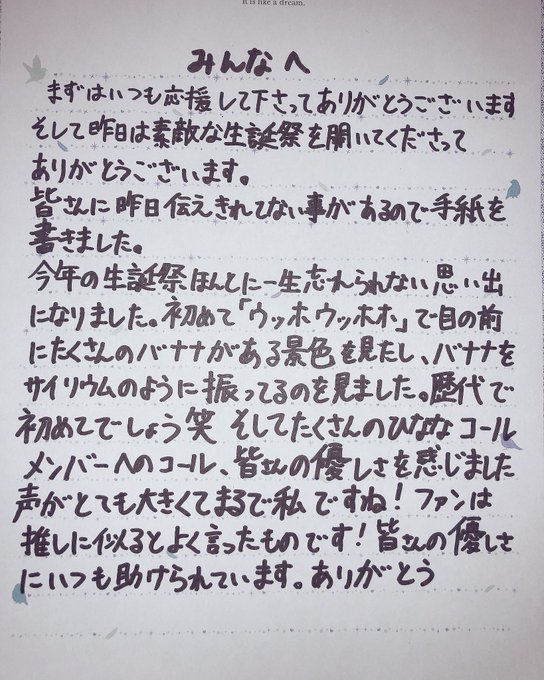 It is like a dream.
みんなへ
まずはいつも応援して下さってありがとうございます
そして昨日は素敵な生誕祭を開いてくださって
ありがとうございます。
皆さんに昨日伝えきれてない事があるので手紙を
書きました。
今年の生誕祭ほんとに一生忘れられない思い出
になりました。初めて「ウッホウッホホ」で目の前
にたくさんのバナナがある景色を見たし、バナナを
サイリウムのように振ってるのを見ました。歴代で
初めてでしょう笑 そしてたくさんのひななコール
メンバーへのコール、皆さんの優しさを感じました
声がとても大きくてまるで私ですね！ファンは
推しに似るとよく言ったものです！皆さんの優しさ
にいつも助けられています。ありがとう